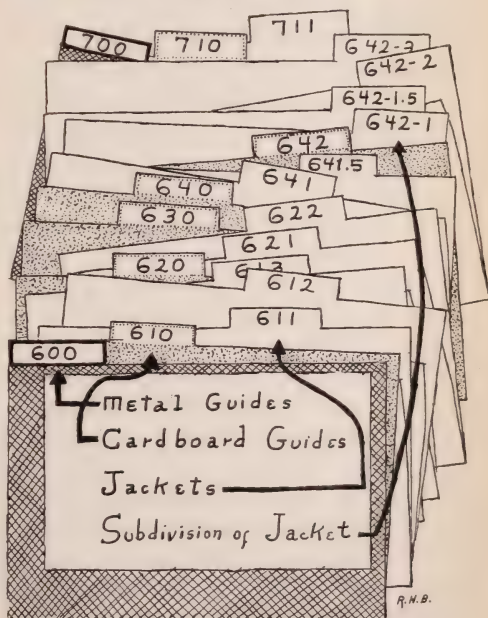 711
700 710
642-3
642-2
642-1.5
642-1
642
641.5
640 641
630 622
621
620 613
612
610 611
600
Metal Guides
Cardboard Guides
Jackets
Subdivision of Jacket
R.N.B.